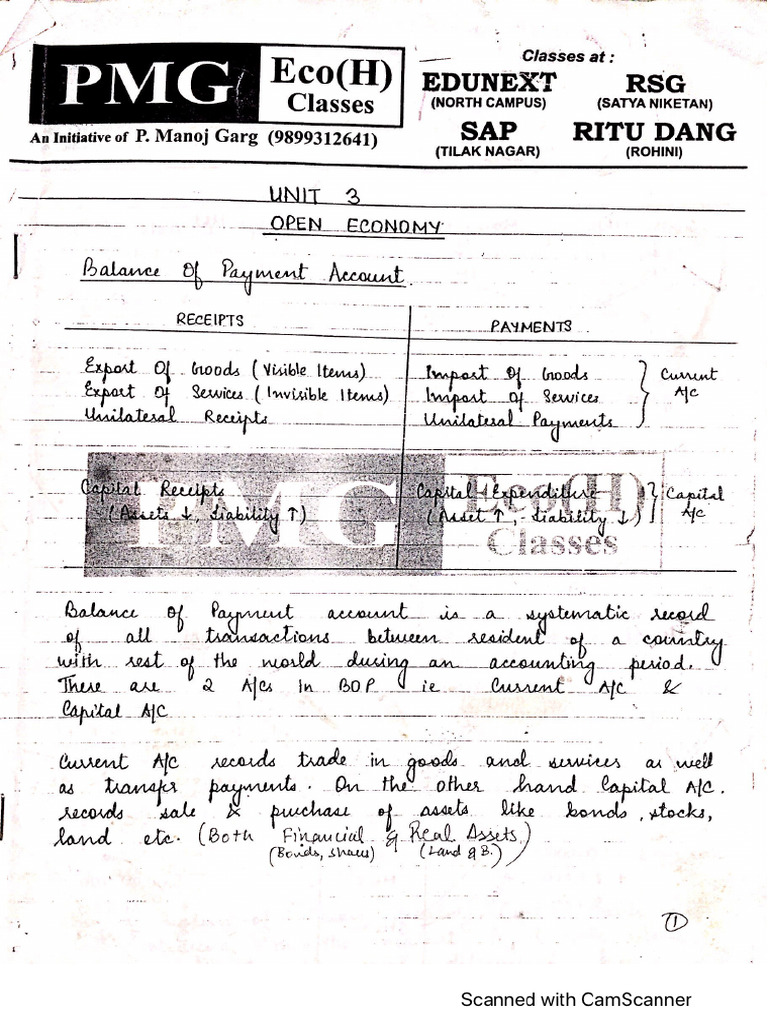 PMG Eco(H) Classes
An Initiative of P. Manoj Garg (9899312641)
Classes at :
EDUNEXT RSG
(NORTH CAMPUS) (SATYA NIKETAN)
SAP RITU DANG
(TILAK NAGAR) (ROHINI)
UNIT 3
OPEN ECONOMY
Balance Of Payment Account.
RECEIPTS PAYMENTS
Export Of Goods (Visible Items) Import Of Goods
Export Of Services (Invisible Items) Import Of Services
Unilateral Receipts Unilateral Payments
Current A/C
Capital Receipts Capital Expenditure
(Assets ↓, Liability ↑) (Asset ↑, Liability ↓)
Capital A/C
PMG Eco(H) Classes
Balance of Payment account is a systematic record
of all transactions between resident of a country
with rest of the world during an accounting period.
There are 2 A/Cs in BOP ie Current A/C &
Capital A/C
Current A/C records trade in goods and services as well
as transfer payments. On the other hand Capital A/C.
records sale & purchase of assets like bonds, stocks,
land etc. (Both Financial & Real Assets)
(Bonds, shares) (Land & B.)
1
Scanned with CamScanner